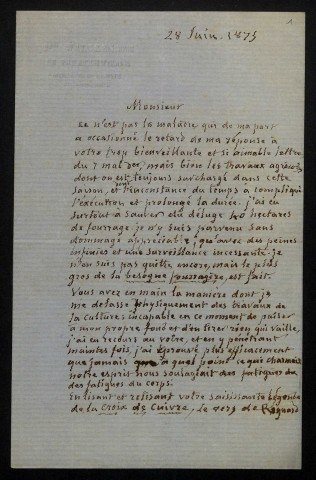 1
28 Juin. 1875
Monsieur
ce n'est pas la maladie qui de ma part
a occasionné le retard de ma réponse à
votre trop bienveillante et si aimable lettre
du 7 mai der, mais bien les travaux agricoles
dont on est toujours surchargé dans cette
saison, et dont l'inconstance du temps a compliqué
l'exécution et prolongé la durée. j'ai eu
surtout à sauver du déluge 40 hectares
de fourrage je n'y suis parvenu sans
dommage appréciable, qu'avec des peines
infinies et une surveillance incessante. je
n'en suis pas quitte encore, mais le plus
gros de la besogne fourragère est fait.
Vous avez en main la manière dont je
me délasse physiquement des travaux de
la culture; incapable en ce moment de puiser
à mon propre fond et d'en tirer rien qui vaille,
j'ai eu recours au votre, et en y pénétrant
maintes fois, j'ai éprouvé plus efficacement
que jamais à quel point ce qui charmait
notre esprit nous soulageait des
des fatigues du corps.
En lisant et relisant votre saisissante Légende
de la Croix de Cuivre, le vers de Regnard